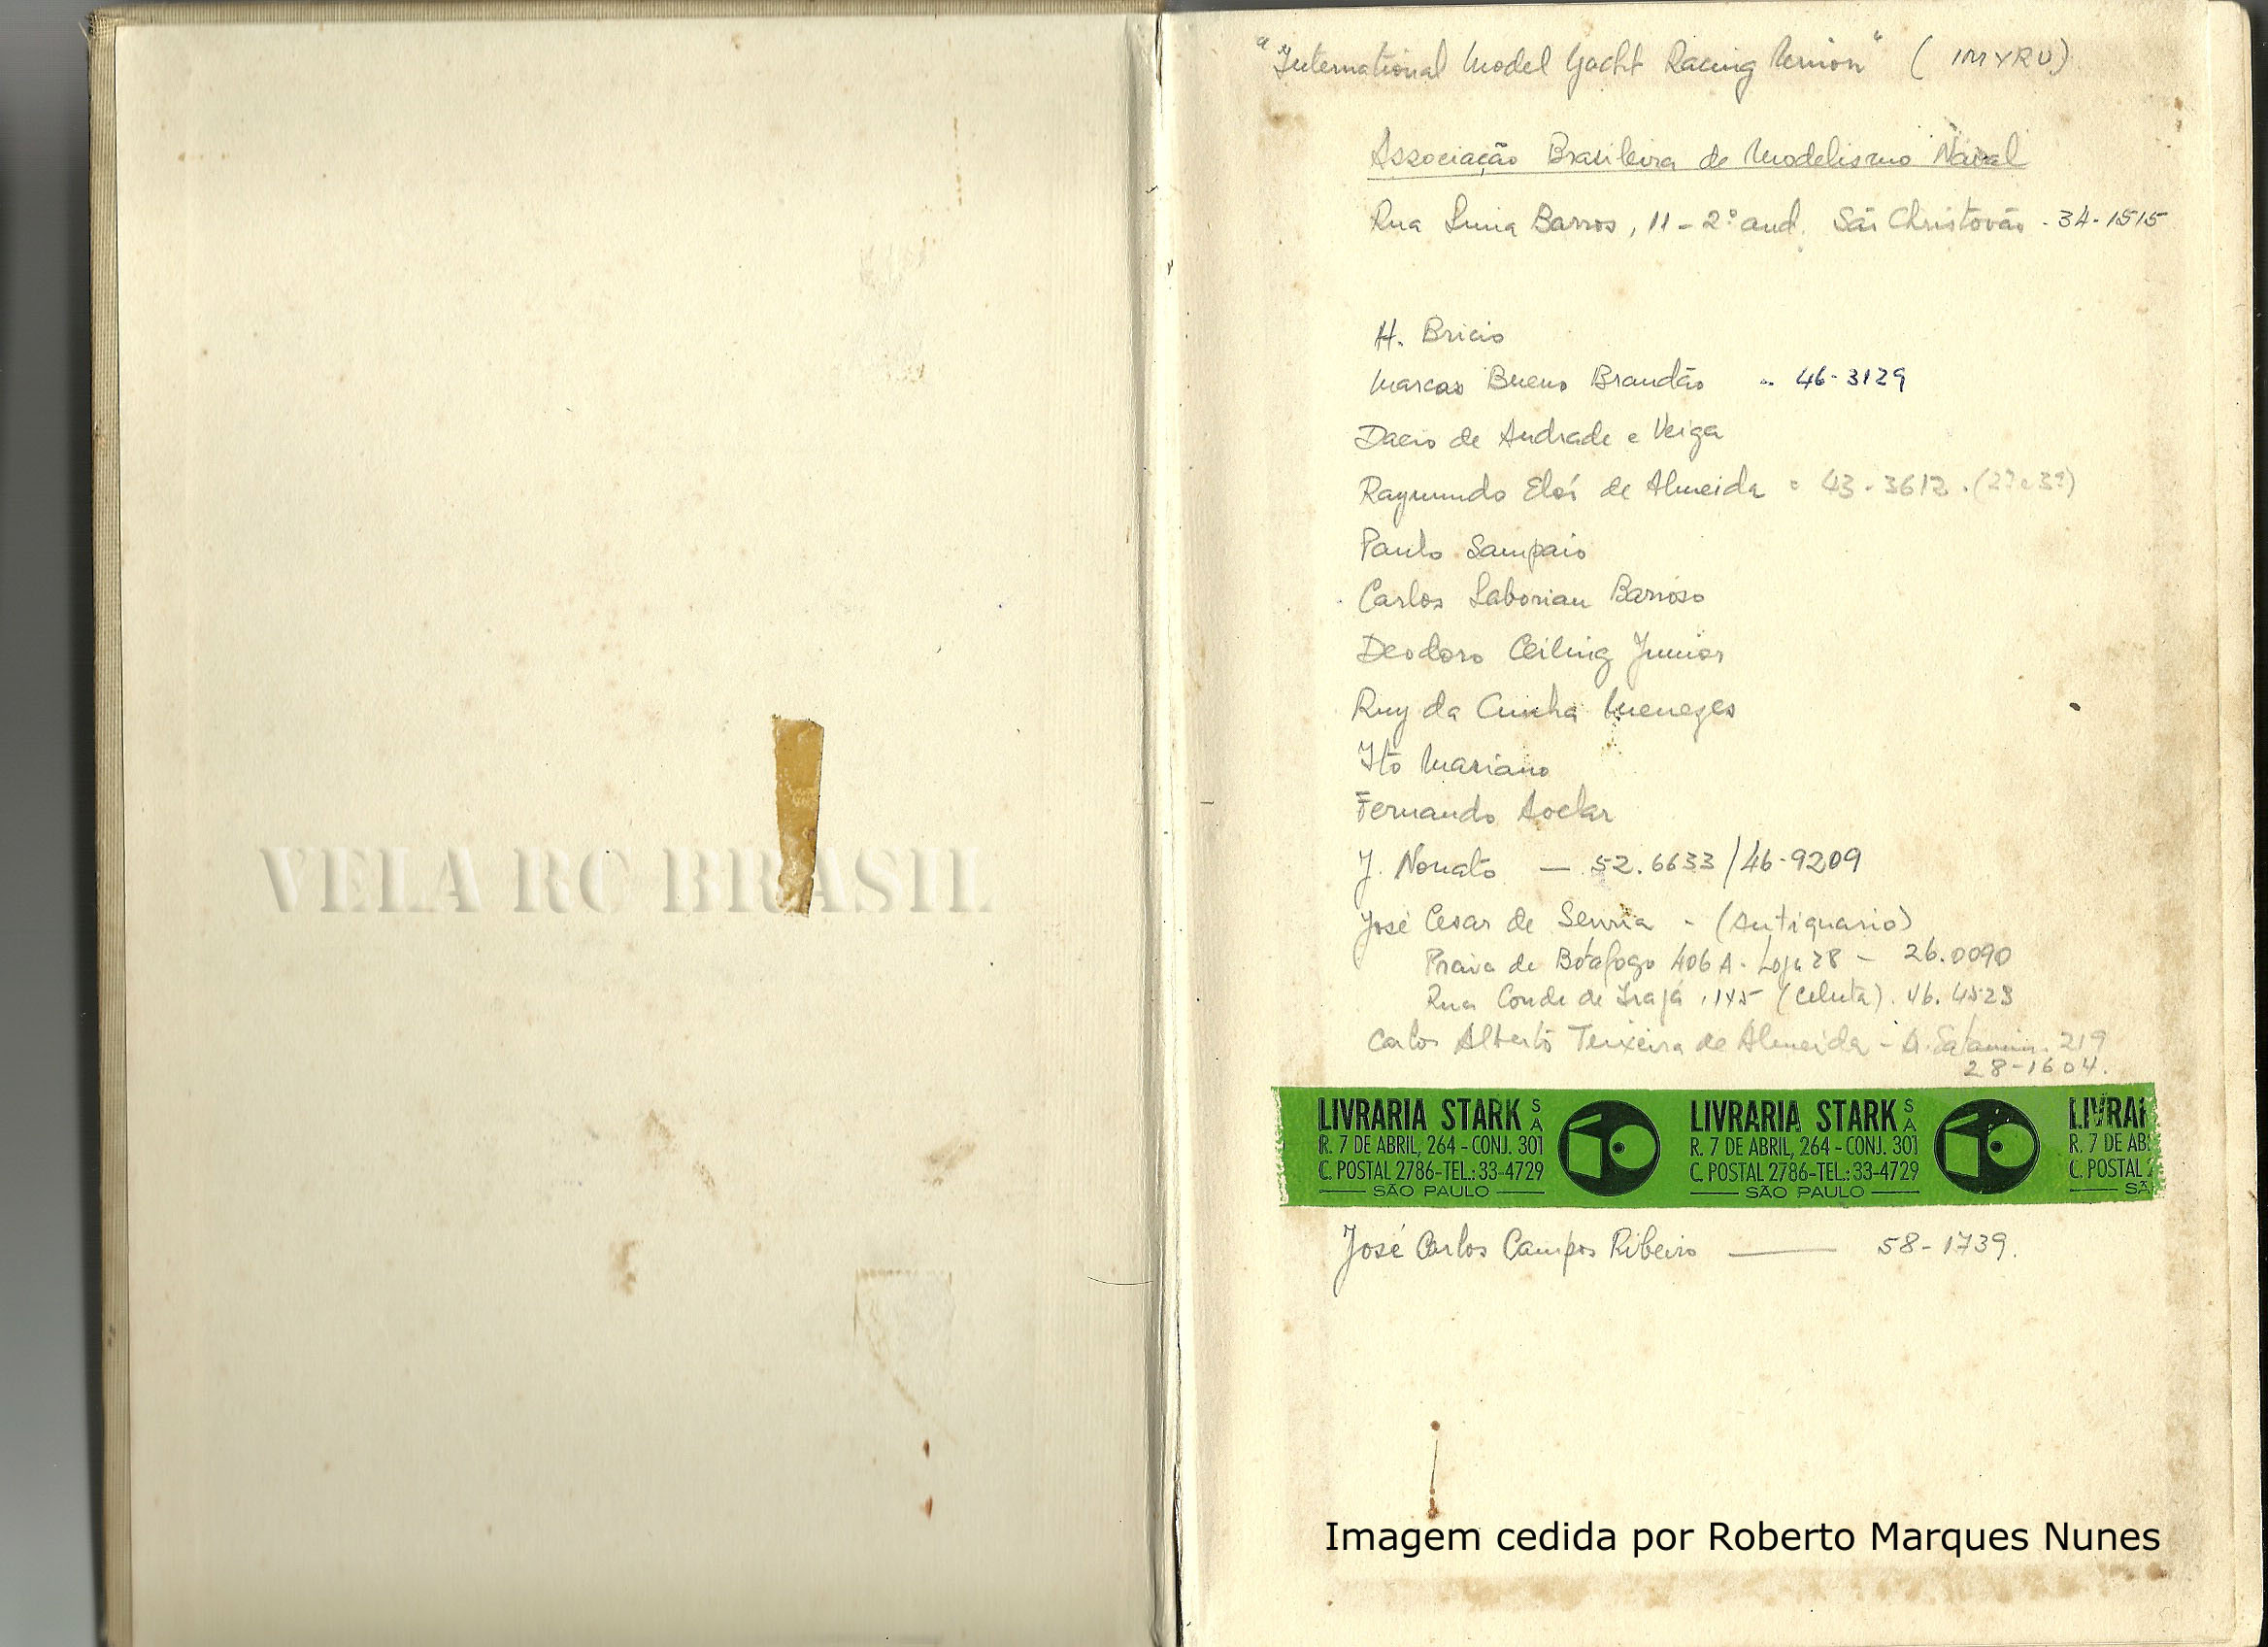 VELA RC BRASIL
"International Model Yacht Racing Union" (IMYRU)
Associação Brasileira de Modelismo Naval
Rua Barros, 11 - 2º and. São Christovão - 34-1515
H. Bricio
Marcos Bueno Brandão - 46-3129
Dacio de Andrade e Veiga
Raymundo Eloi de Almeida - 43-3612. (2ª e 3ª)
Paulo Sampaio
Carlos Laboriau Barroso
Deodoro Junior
Ruy da Cunha Menezes
Ito Mariano
Fernando Avelar
J. Nonato — 52.6633/46-9209
José Cesar de - (Antiquario)
Praia de Botafogo 406 A - Loja 28 - 26.0090
Rua Conde de Irajá, 145 46.4523
Carlos Alberto Teixeira de Almeida - 219
28-1604.
LIVRARIA STARK SA LIVRARIA STARK SA LIVRAR
R. 7 DE ABRIL, 264 - CONJ. 301 R. 7 DE ABRIL, 264 - CONJ. 301 R. 7 DE AB
C. POSTAL 2786-TEL.: 33-4729 C. POSTAL 2786-TEL.: 33-4729 C. POSTAL
SÃO PAULO SÃO PAULO SÃ
José Carlos Campos Ribeiro — 58-1739.
Imagem cedida por Roberto Marques Nunes